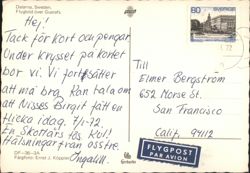 Dalarna, Sweden.
Flygbild över
Hej!
Tack för kort och pengar.
Under krysset på kortet
bor vi. Vi fortsätter
att må bra. Kan tala om
att Nisses Birgit fått en
flicka idag. 7/1-72
En Skottårs tös Kul!
Hälsningar från oss tre.
Ingalill.
Färgfoto: Ernst J. Köppler
80
SVERIGE
72
Till
Elmer Bergström
652 Morse St.
San Francisco
Calif. 94112
FLYGPOST
PAR AVION